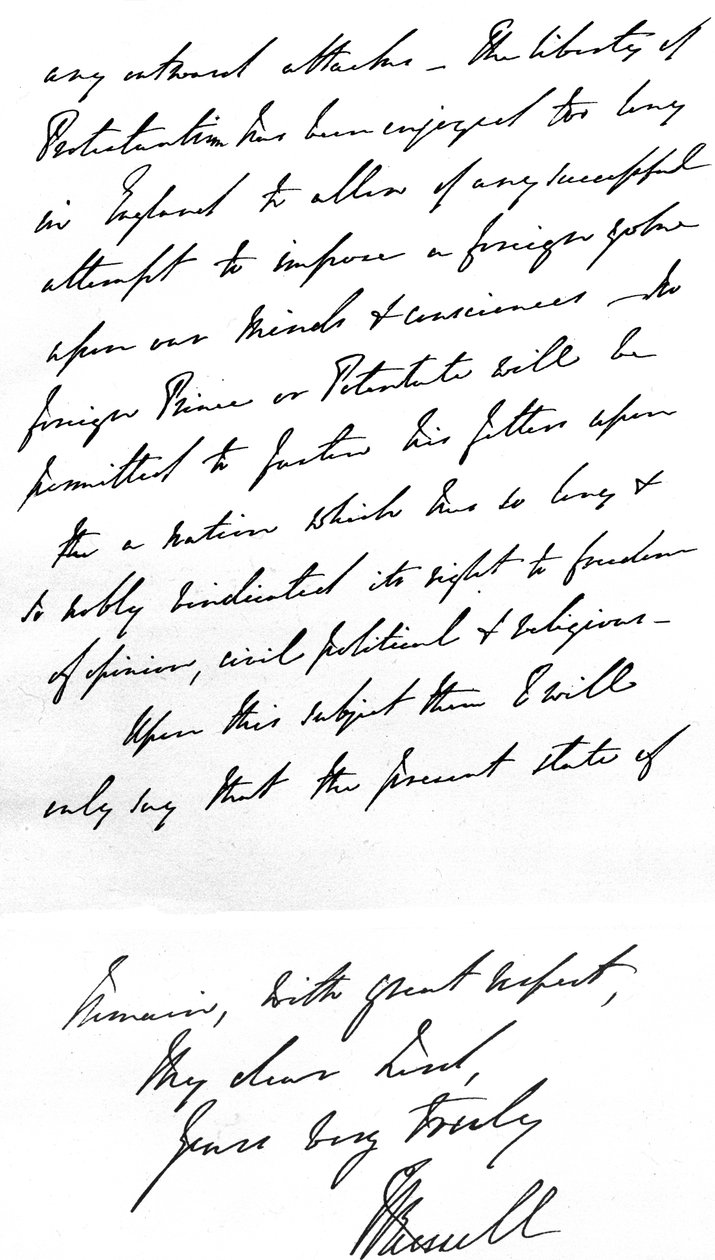 any outward attacks — The liberty of
Protestantism has been enjoyed too long
in England to allow of any successful
attempt to impose a foreign yoke
upon our minds & consciences — No
foreign Prince or Potentate will be
permitted to fasten his fetters upon
the a nation which has so long &
so nobly vindicated its right to freedom
of opinion, civil political & religious —
Upon this subject then I will
only say that the present state of
remain, with great respect,
My dear Lord,
Yours very truly
J Russell